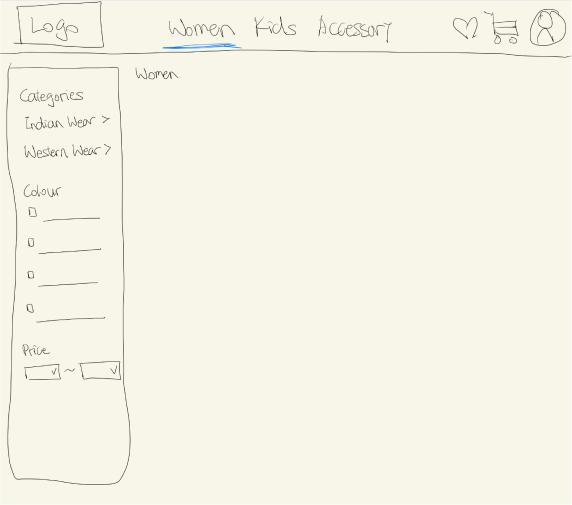 Logo
Women Kids Accessory
Women
Categories
Indian Wear >
Western Wear >
Colour
Price
~